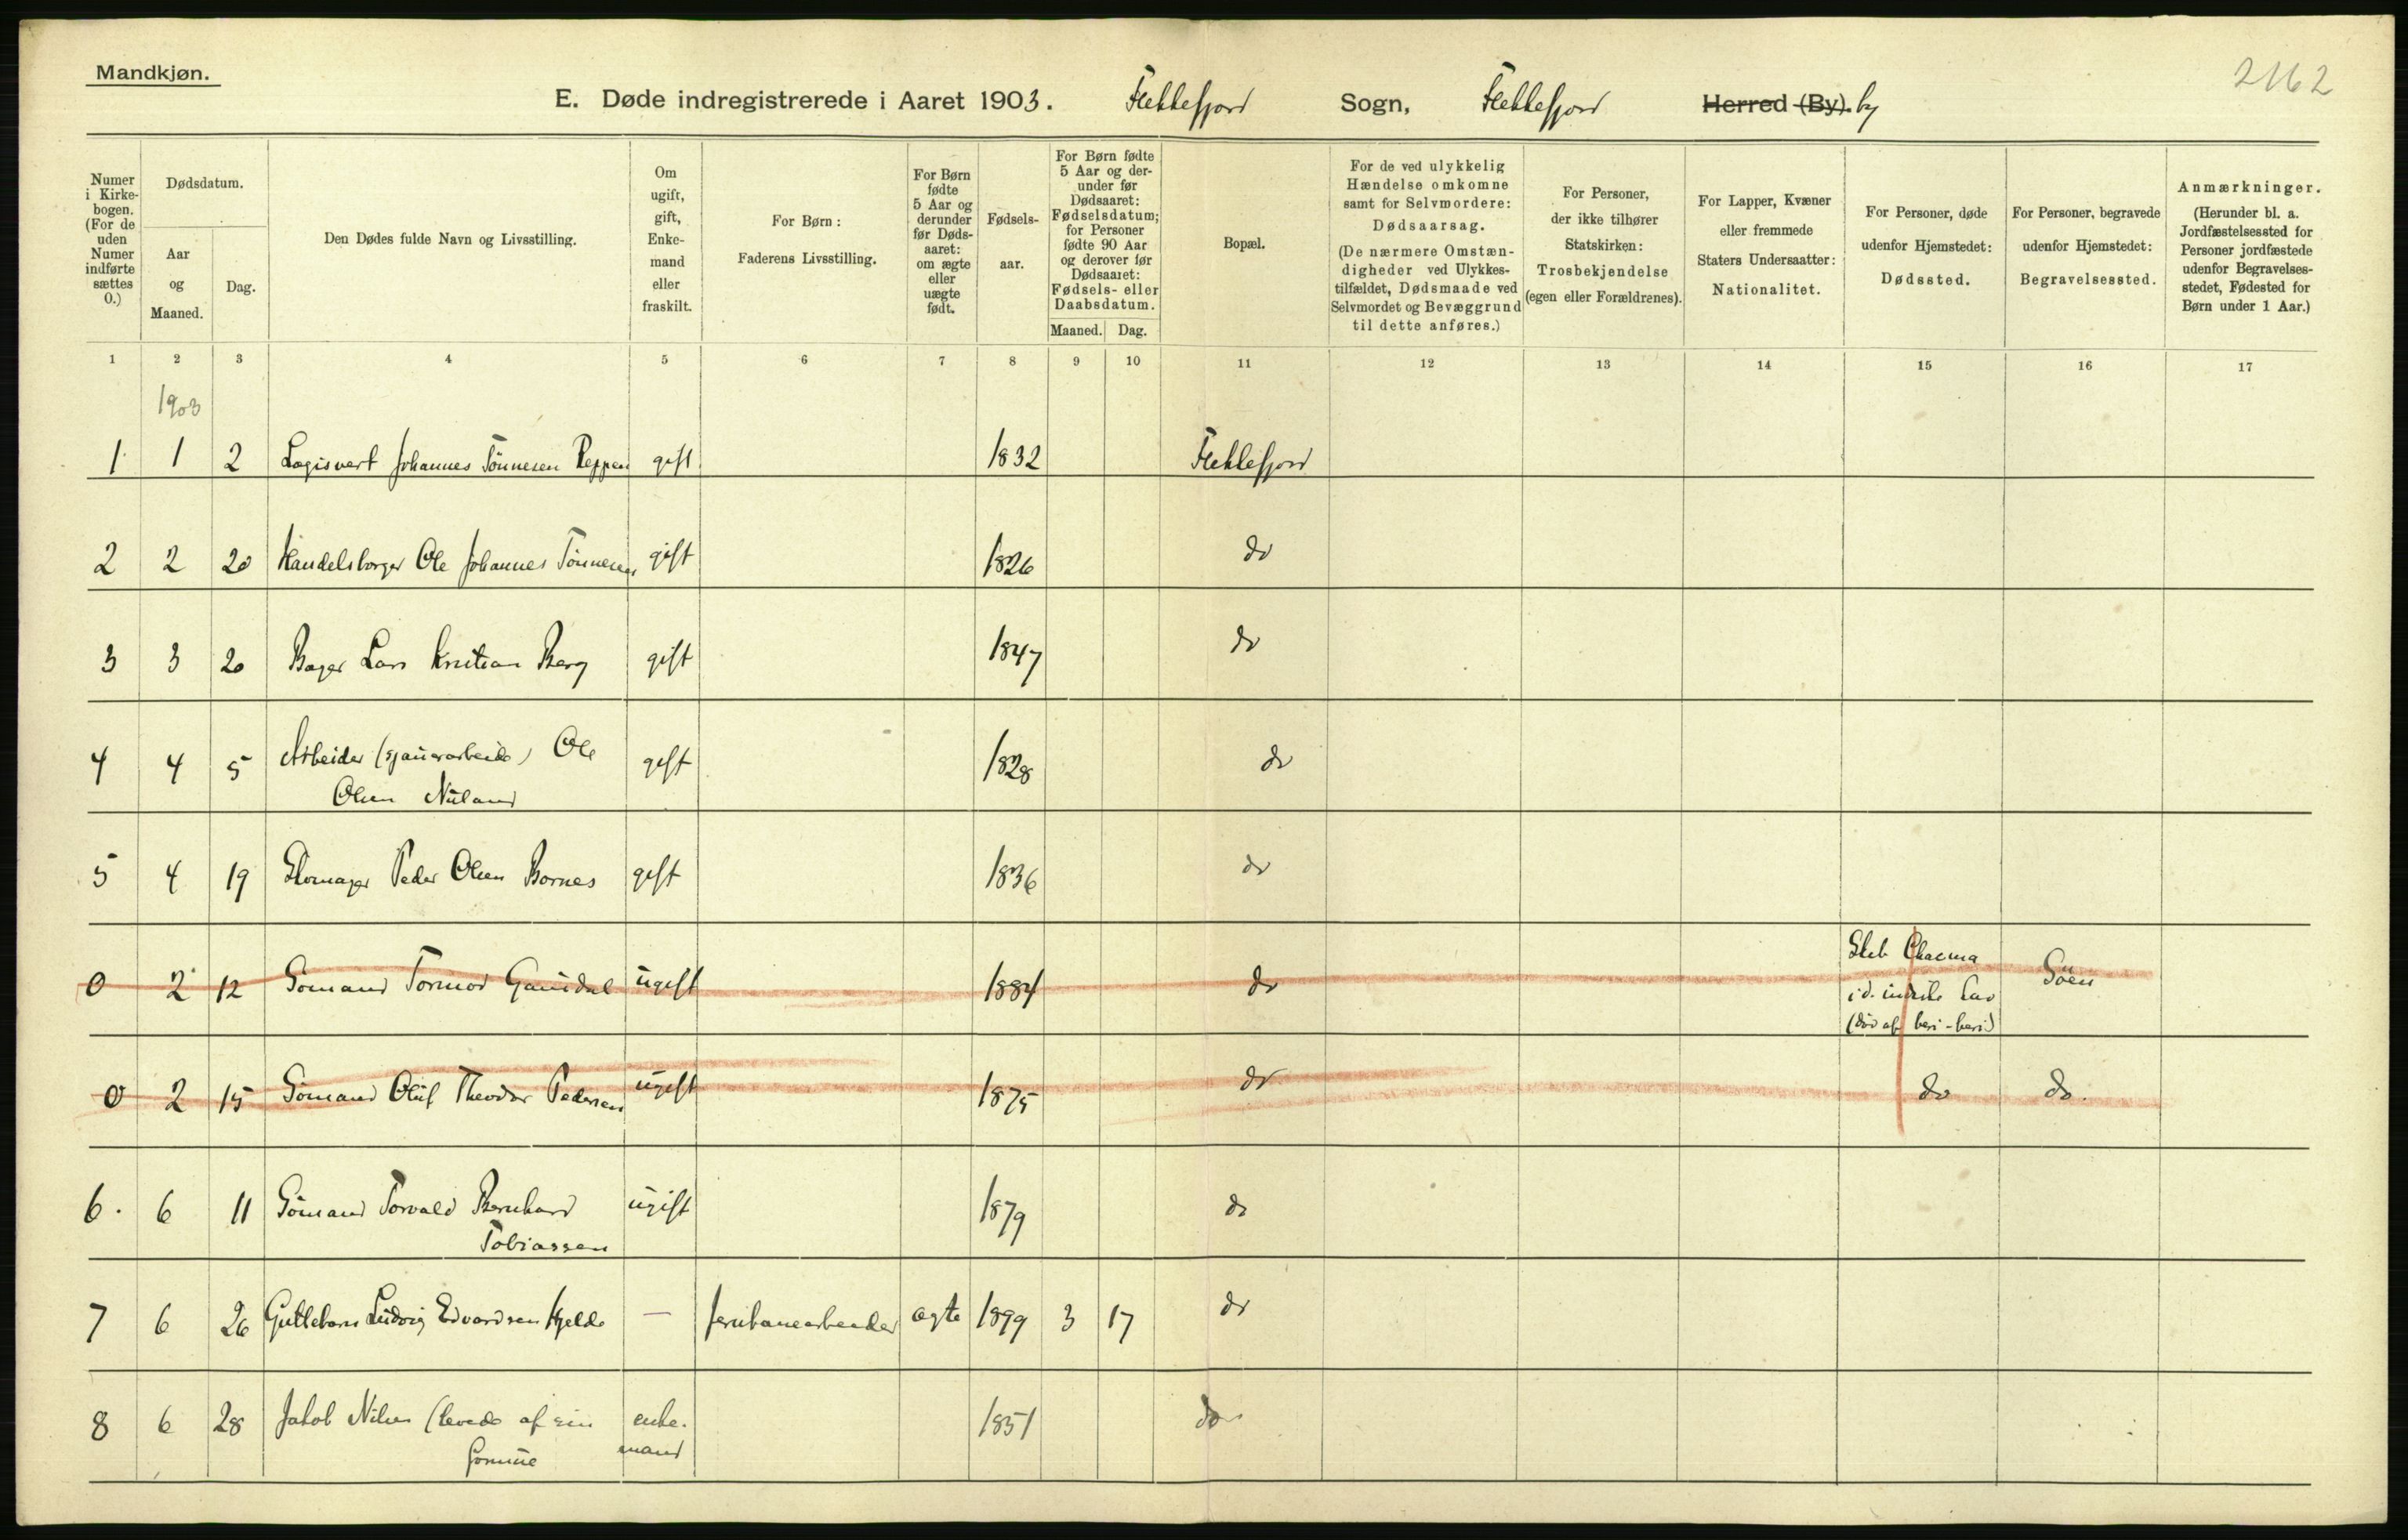 Mandkjøn.
2162
E. Døde indregistrerede i Aaret 1903. Flekkefjord Sogn, Flekkefjord Herred (By). by
Numer i Kirke-bogen. (For de uden Numer indførte sættes 0.)
Dødsdatum.
Aar og Maaned.
Dag.
Den Dødes fulde Navn og Livsstilling.
Om ugift, gift, Enke-mand eller fraskilt.
For Børn: Faderens Livsstilling.
For Børn fødte 5 Aar og derunder før Døds-aaret: om ægte eller uægte født.
Fødsels-aar.
For Børn fødte 5 Aar og der-under før Dødsaaret: Fødselsdatum; for Personer fødte 90 Aar og derover før Dødsaaret: Fødsels- eller Daabsdatum.
Maaned. Dag.
Bopæl.
For de ved ulykkelig Hændelse omkomne samt for Selvmordere: Dødsaarsag. (De nærmere Omstæn-digheder ved Ulykkes-tilfældet, Dødsmaade ved Selvmordet og Bevæggrund til dette anføres.)
For Personer, der ikke tilhører Statskirken: Trosbekjendelse (egen eller Forældrenes).
For Lapper, Kvæner eller fremmede Staters Undersaatter: Nationalitet.
For Personer, døde udenfor Hjemstedet: Dødssted.
For Personer, begravede udenfor Hjemstedet: Begravelsessted.
Anmærkninger. (Herunder bl. a. Jordfæstelsessted for Personer jordfæstede udenfor Begravelses-stedet, Fødested for Børn under 1 Aar.)
1 2 3 4 5 6 7 8 9 10 11 12 13 14 15 16 17
1903
1 1 2 Logisvert Johannes Tönnesen Peppen gift 1832 Flekkefjord
2 2 20 Handelsborger Ole Johannes Tönnesen gift 1826 do
3 3 20 Bager Lars Kristian Berg gift 1847 do
4 4 5 Arbeider (sjauerarbeide) Ole gift 1828 do
Olsen Nuland
5 4 19 Skomager Peder Olsen Bornes gift 1836 do
0 2 12 Sömand Tormod ugift 1884 do Skib Söen
i d. indiske hav
(död af beri-beri)
0 2 15 Sömand Oluf Theodor Pedersen ugift 1875 do do do.
6. 6 11 Sömand Torvald Bernhard ugift 1879 do
Tobiassen
7 6 26 Guttebarn Ludvig Edvardsen Hjelde — jernbanearbeider ægte 1899 3 17 do
8 6 28 Jakob Nilsen (levede af sin enke- 1851 do
formue mand